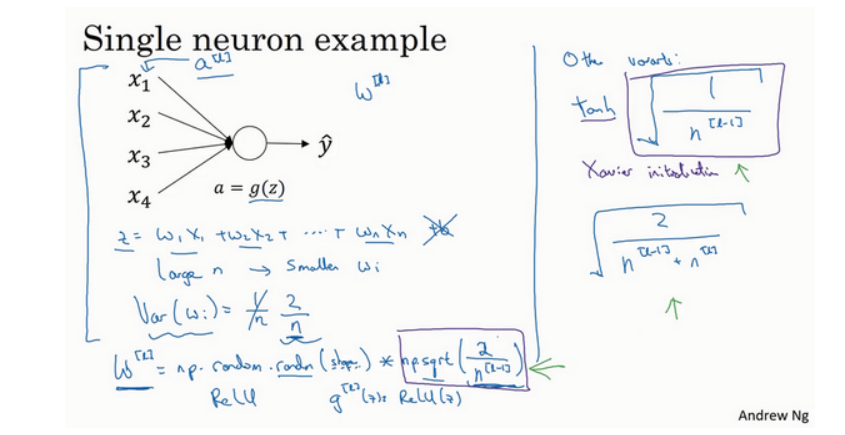 Single neuron example
a^[l]
x₁
w^[l]
x₂
x₃
ŷ
x₄
a = g(z)
z = w₁x₁ + w₂x₂ + ····· + wₙxₙ +b
Large n → Smaller wᵢ
Var(wᵢ) = 1/n 2/n
W^[l] = np.random.randn(shape) * np.sqrt(2/n^[l-1])
ReLU g^[l](z) = ReLU(z)
Other variants:
tanh √(1/n^[l-1])
Xavier initialization ↑
√(2/(n^[l-1] + n^[l]))
↑
Andrew Ng